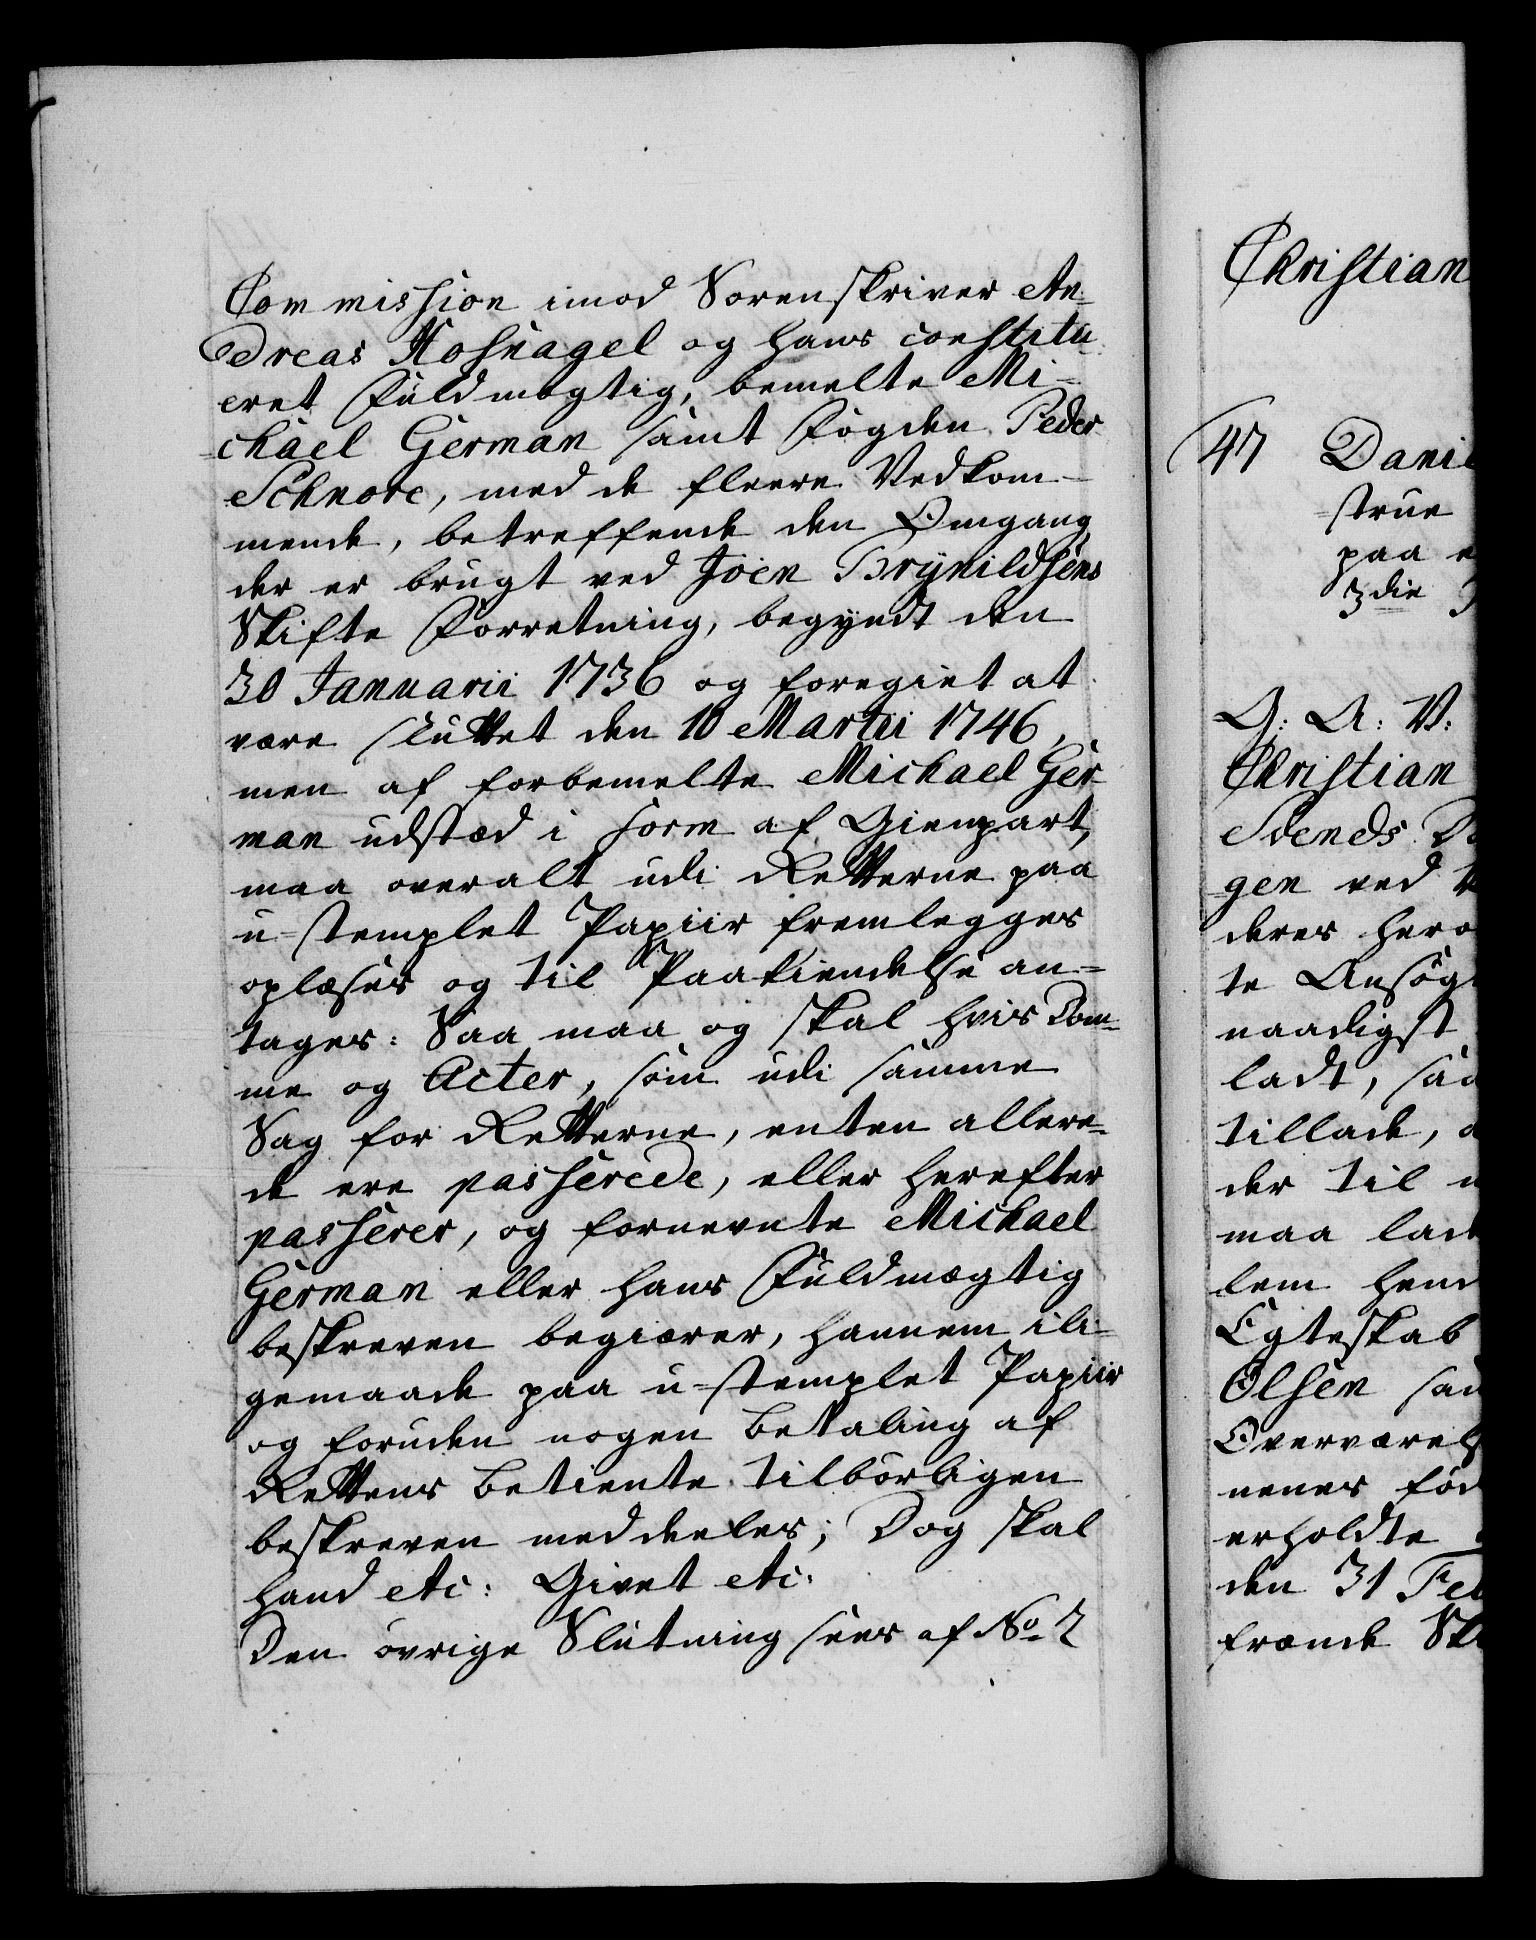 Commission imod Sorenskriver An-
dreas Hofnagel og hans constitu-
eret Fuldmegtig, bemelte Mi-
chael German samt Fogden Peder
Schnore, med de fleere Vedkom-
mende, betreffende den Omgang,
der er brugt ved Joen Brynildsens
Skifte Forretning, begyndt den
30 Januarii 1736 og foregivet at
være sluttet den 10 Martii 1746,
men af forbemelte Michael Ger-
man udstæd i form af Gienpart,
maa overalt udi Retterne paa
u-stemplet Papiir fremlegges
oplæses og til Paakiendelse an-
tages: Saa maa og skal hvis Dom-
me og Acter, som udi samme
Sag for Retterne, enten allere-
de ere passerede, eller herefter
passerer, og fornevnte Michael
German eller hans Fuldmægtig
beskreven begiærer, hannem ili-
gemaade paa u-stemplet Papiir
og foruden nogen Betaling af
Rettens Betiente tilbørligen
beskreven meddeeles; Dog skal
hand etc: Givet etc:
Den øvrige Slutning sees af No. 2
Christian
47 Dani
strue
paa
3die
G: A: V:
Christian
Svends
gen ved
deres hero
te Ansøg
naadigst
ladt, saa
tillade,
der til
maa lad
lem hend
Egteskab
Olsen sam
Overværels
nenes fød
erholdte
den 31 Feb
frænde